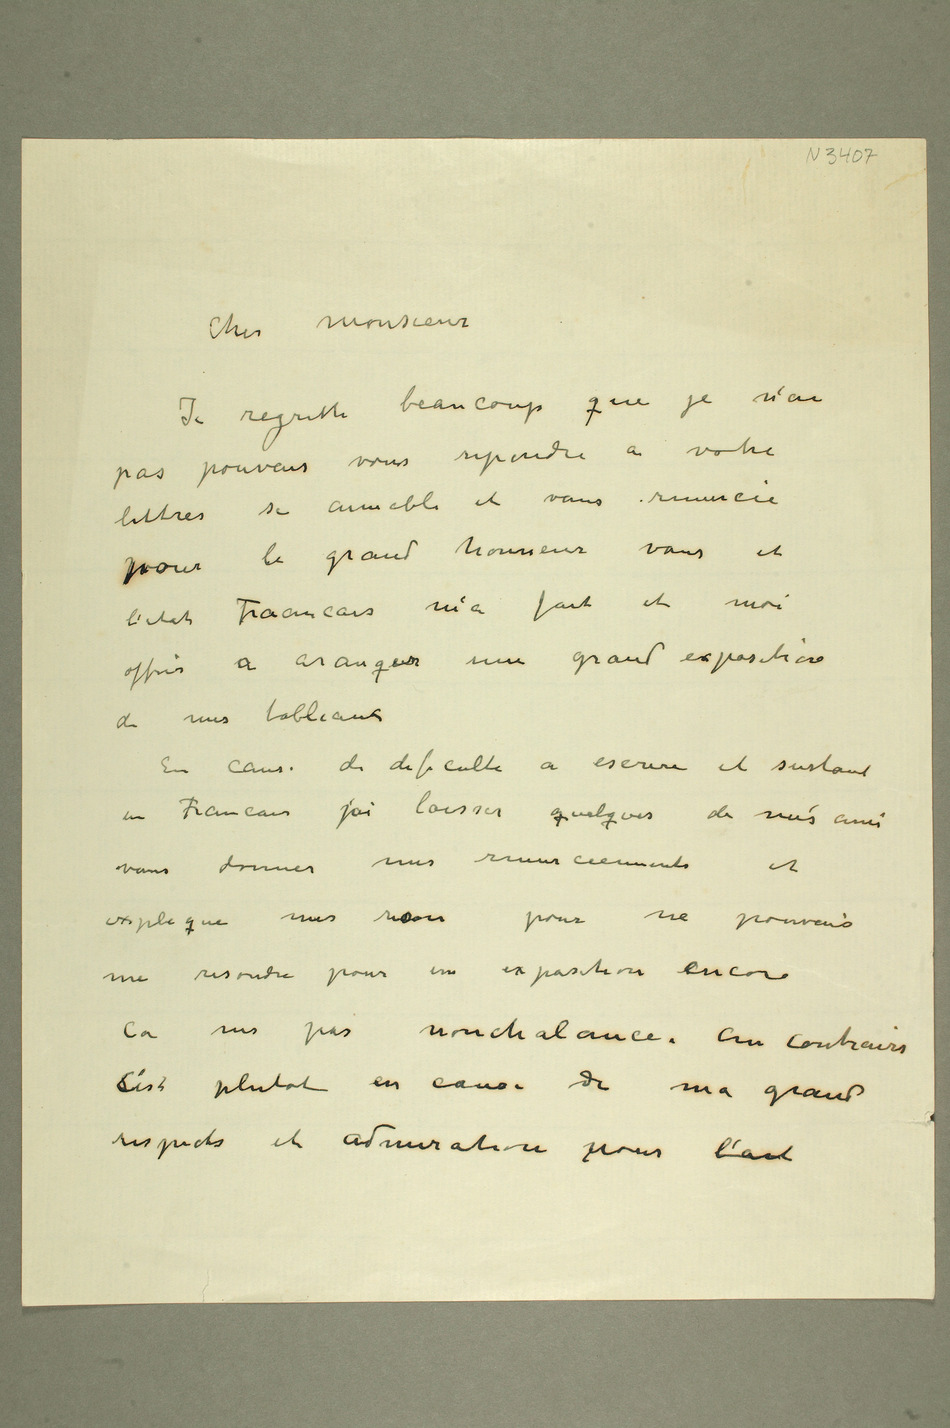 N 3407
Cher Monsieur
Je regrette beaucoup que je n'ai
pas pouvais vous repondre a votre
lettres si aimable et vous remercie
pour le grand honneur vous et
l'etat Francais m'a fait et moi
offrir a aranger une grand exposition
de mes tableaux
En cause de dificulte a escrire et surtout
en Francais j'ai laisser quelques de mes amis
vous donner mes remerciements et
explique mes reson pour ne pouvais
me resoudre pour un exposition encore
Ca nes pas nonchalance. Au contrairs
C'est plutot en cause de ma grand
respects et admiration pour l'art